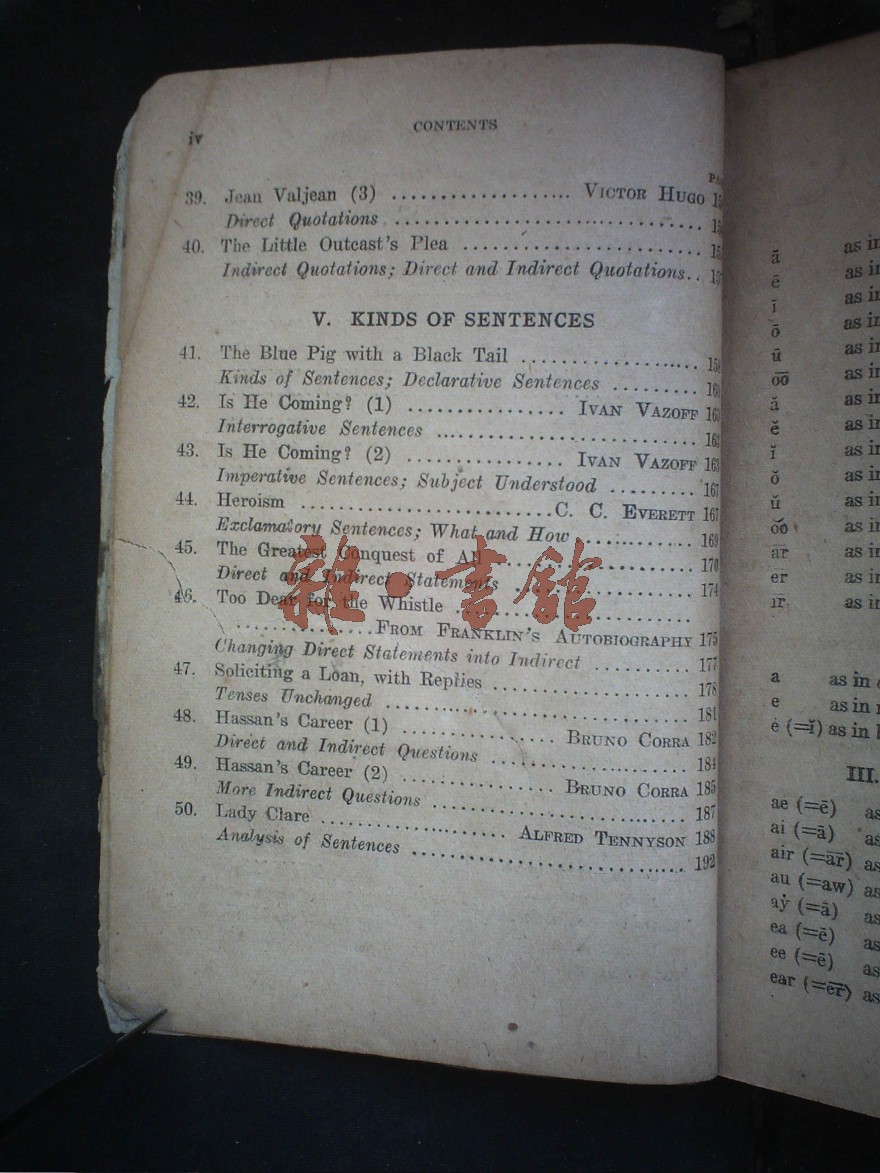 iv
CONTENTS
39. Jean Valjean (3) .................. VICTOR HUGO
Direct Quotations ..............................
40. The Little Outcast's Plea ........................
Indirect Quotations; Direct and Indirect Quotations..
V. KINDS OF SENTENCES
41. The Blue Pig with a Black Tail ..................
Kinds of Sentences; Declarative Sentences .........
42. Is He Coming? (1) ................ IVAN VAZOFF
Interrogative Sentences ..........................
43. Is He Coming? (2) ................ IVAN VAZOFF
Imperative Sentences; Subject Understood ......... 167
44. Heroism .......................... C. C. EVERETT 167
Exclamatory Sentences; What and How ............ 169
45. The Greatest Conquest of All ..................... 170
Direct and Indirect Statements .................. 174
46. Too Dear for the Whistle ........................
............... FROM FRANKLIN'S AUTOBIOGRAPHY 175
Changing Direct Statements into Indirect ......... 177
47. Soliciting a Loan, with Replies .................... 178
Tenses Unchanged ............................... 181
48. Hassan's Career (1) ................ BRUNO CORRA 182
Direct and Indirect Questions .................... 184
49. Hassan's Career (2) ................ BRUNO CORRA 185
More Indirect Questions .......................... 187
50. Lady Clare ................... ALFRED TENNYSON 188
Analysis of Sentences ............................ 192
雜·書館
ā as in
ē as in
ī as in
ō as in
ū as in
o͞o as in
ă as in
ĕ as in
ĭ as in
ŏ as in
ŭ as in
o͝o as in
as in
as in
as in
a as in
e as in
ė (=ĭ) as in
III.
ae (=ē) as
ai (=ā) as
air (=a͞r) as
au (=aw) as
aẏ (=ā) as
ea (=ē) as
ee (=ē) as
ear (=e͞r) as